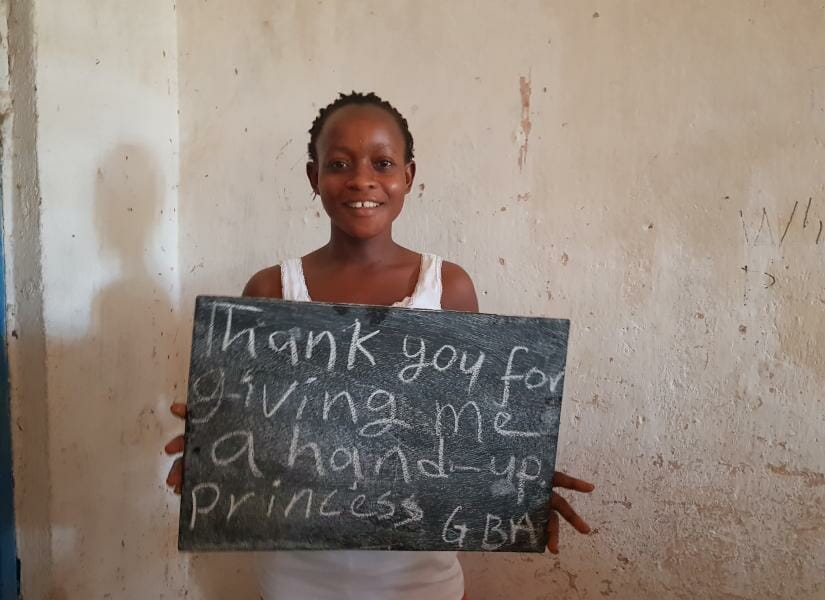 Thank you for
giving me
a hand-up
princess GBA